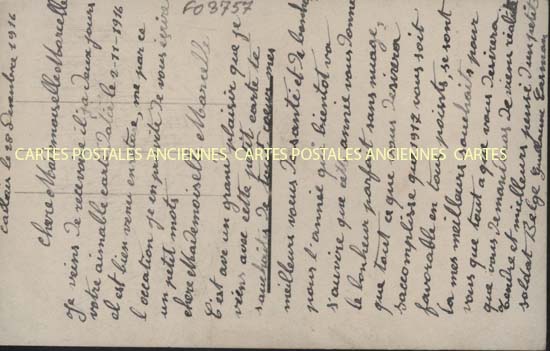 FO 3757
Calais le 28 Decembre 1916
Chère Mademoiselle Marcelle
Je viens de recevoir il y a deux jours
votre aimable carte datée le 2-11-1916
el est bien venu en retire, me par ce
l'occation je en profite de vous ecrire
un petit mots
chere Mademoiselle Marcelle
C'est avec un grand plaisir que je
viens avec cette petit carte te
souhaits de tout coeur mes
meilleurs voeux de santé et de bonheur
pour l'année qui bientot va
s'ouvrire que cette année vous donne
le bonheur parfait sans nuage,
que tout ce que vous desirera
s'accomplisse que 1917 vous soit
favorable en tout points, se sont
la mes meilleurs souhaits pour
vous que tout a que vous desirera
que vous demand pas de venir réalité
Tendre et meilleurs pensé d'un petit
soldat Belge Guillaume
CARTES POSTALES ANCIENNES CARTES POSTALES ANCIENNES CARTES POSTALES ANCIENNES